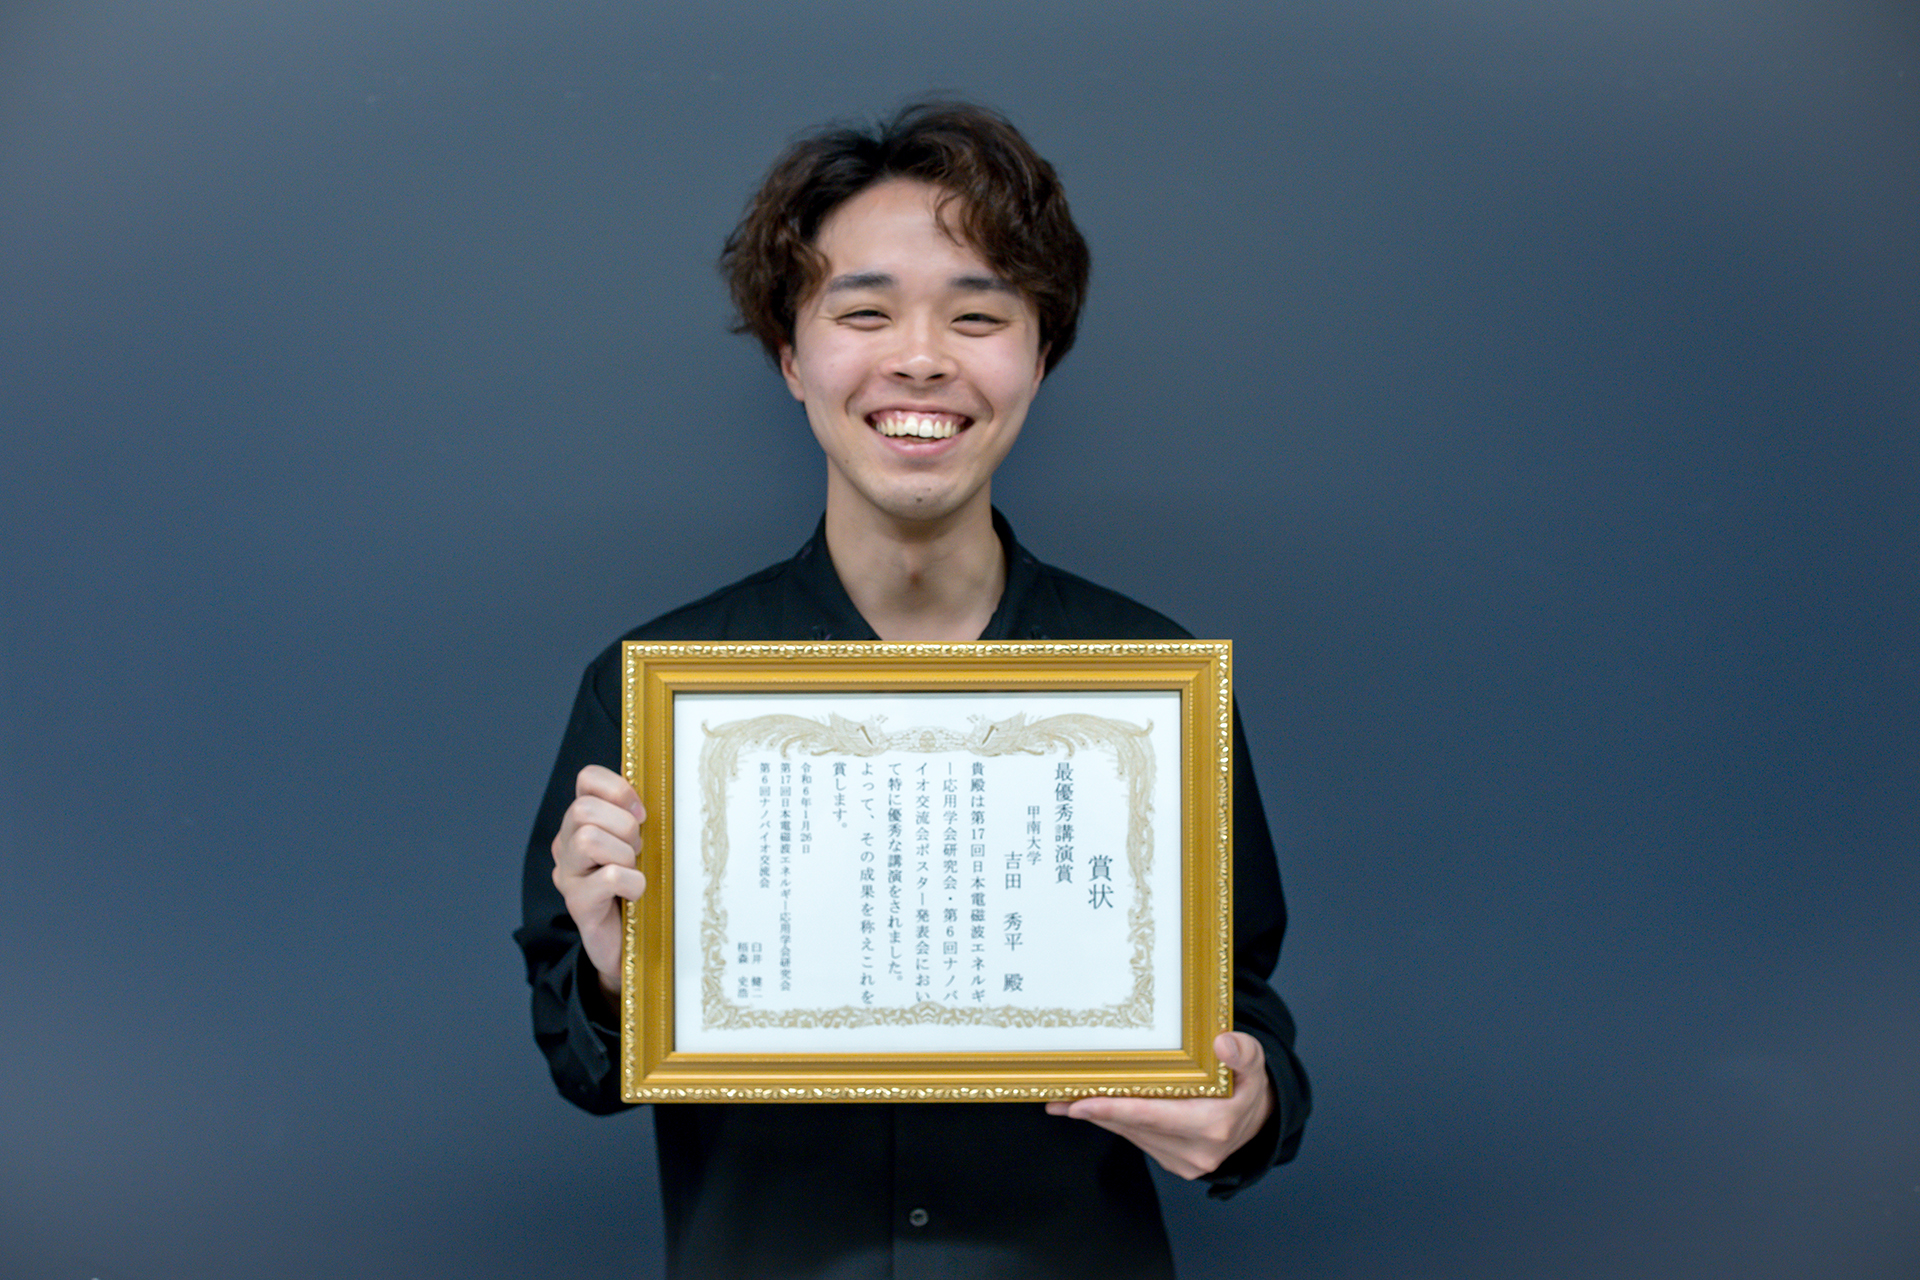 賞状
最優秀講演賞
甲南大学
吉田 秀平 殿
貴殿は第17回日本電磁波エネルギ
ー応用学会研究会・第6回ナノバ
イオ交流会ポスター発表会におい
て特に優秀な講演をされました。
よって、その成果を称えこれを
賞します。
令和6年1月26日
第17回日本電磁波エネルギー応用学会研究会
第6回ナノバイオ交流会
臼井 健二
栢森 史浩